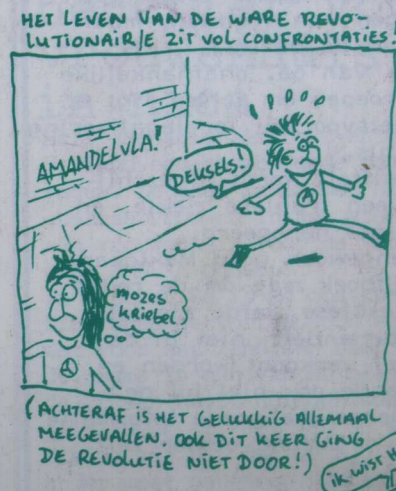 HET LEVEN VAN DE WARE REVO-
LUTIONAIR/E ZIT VOL CONFRONTATIES!
AMANDELVLA!
DEKSELS!
mozes
kriebel
(ACHTERAF IS HET GELUKKIG ALLEMAAL
MEEGEVALLEN. OOK DIT KEER GING
DE REVOLUTIE NIET DOOR!)
ik WIST